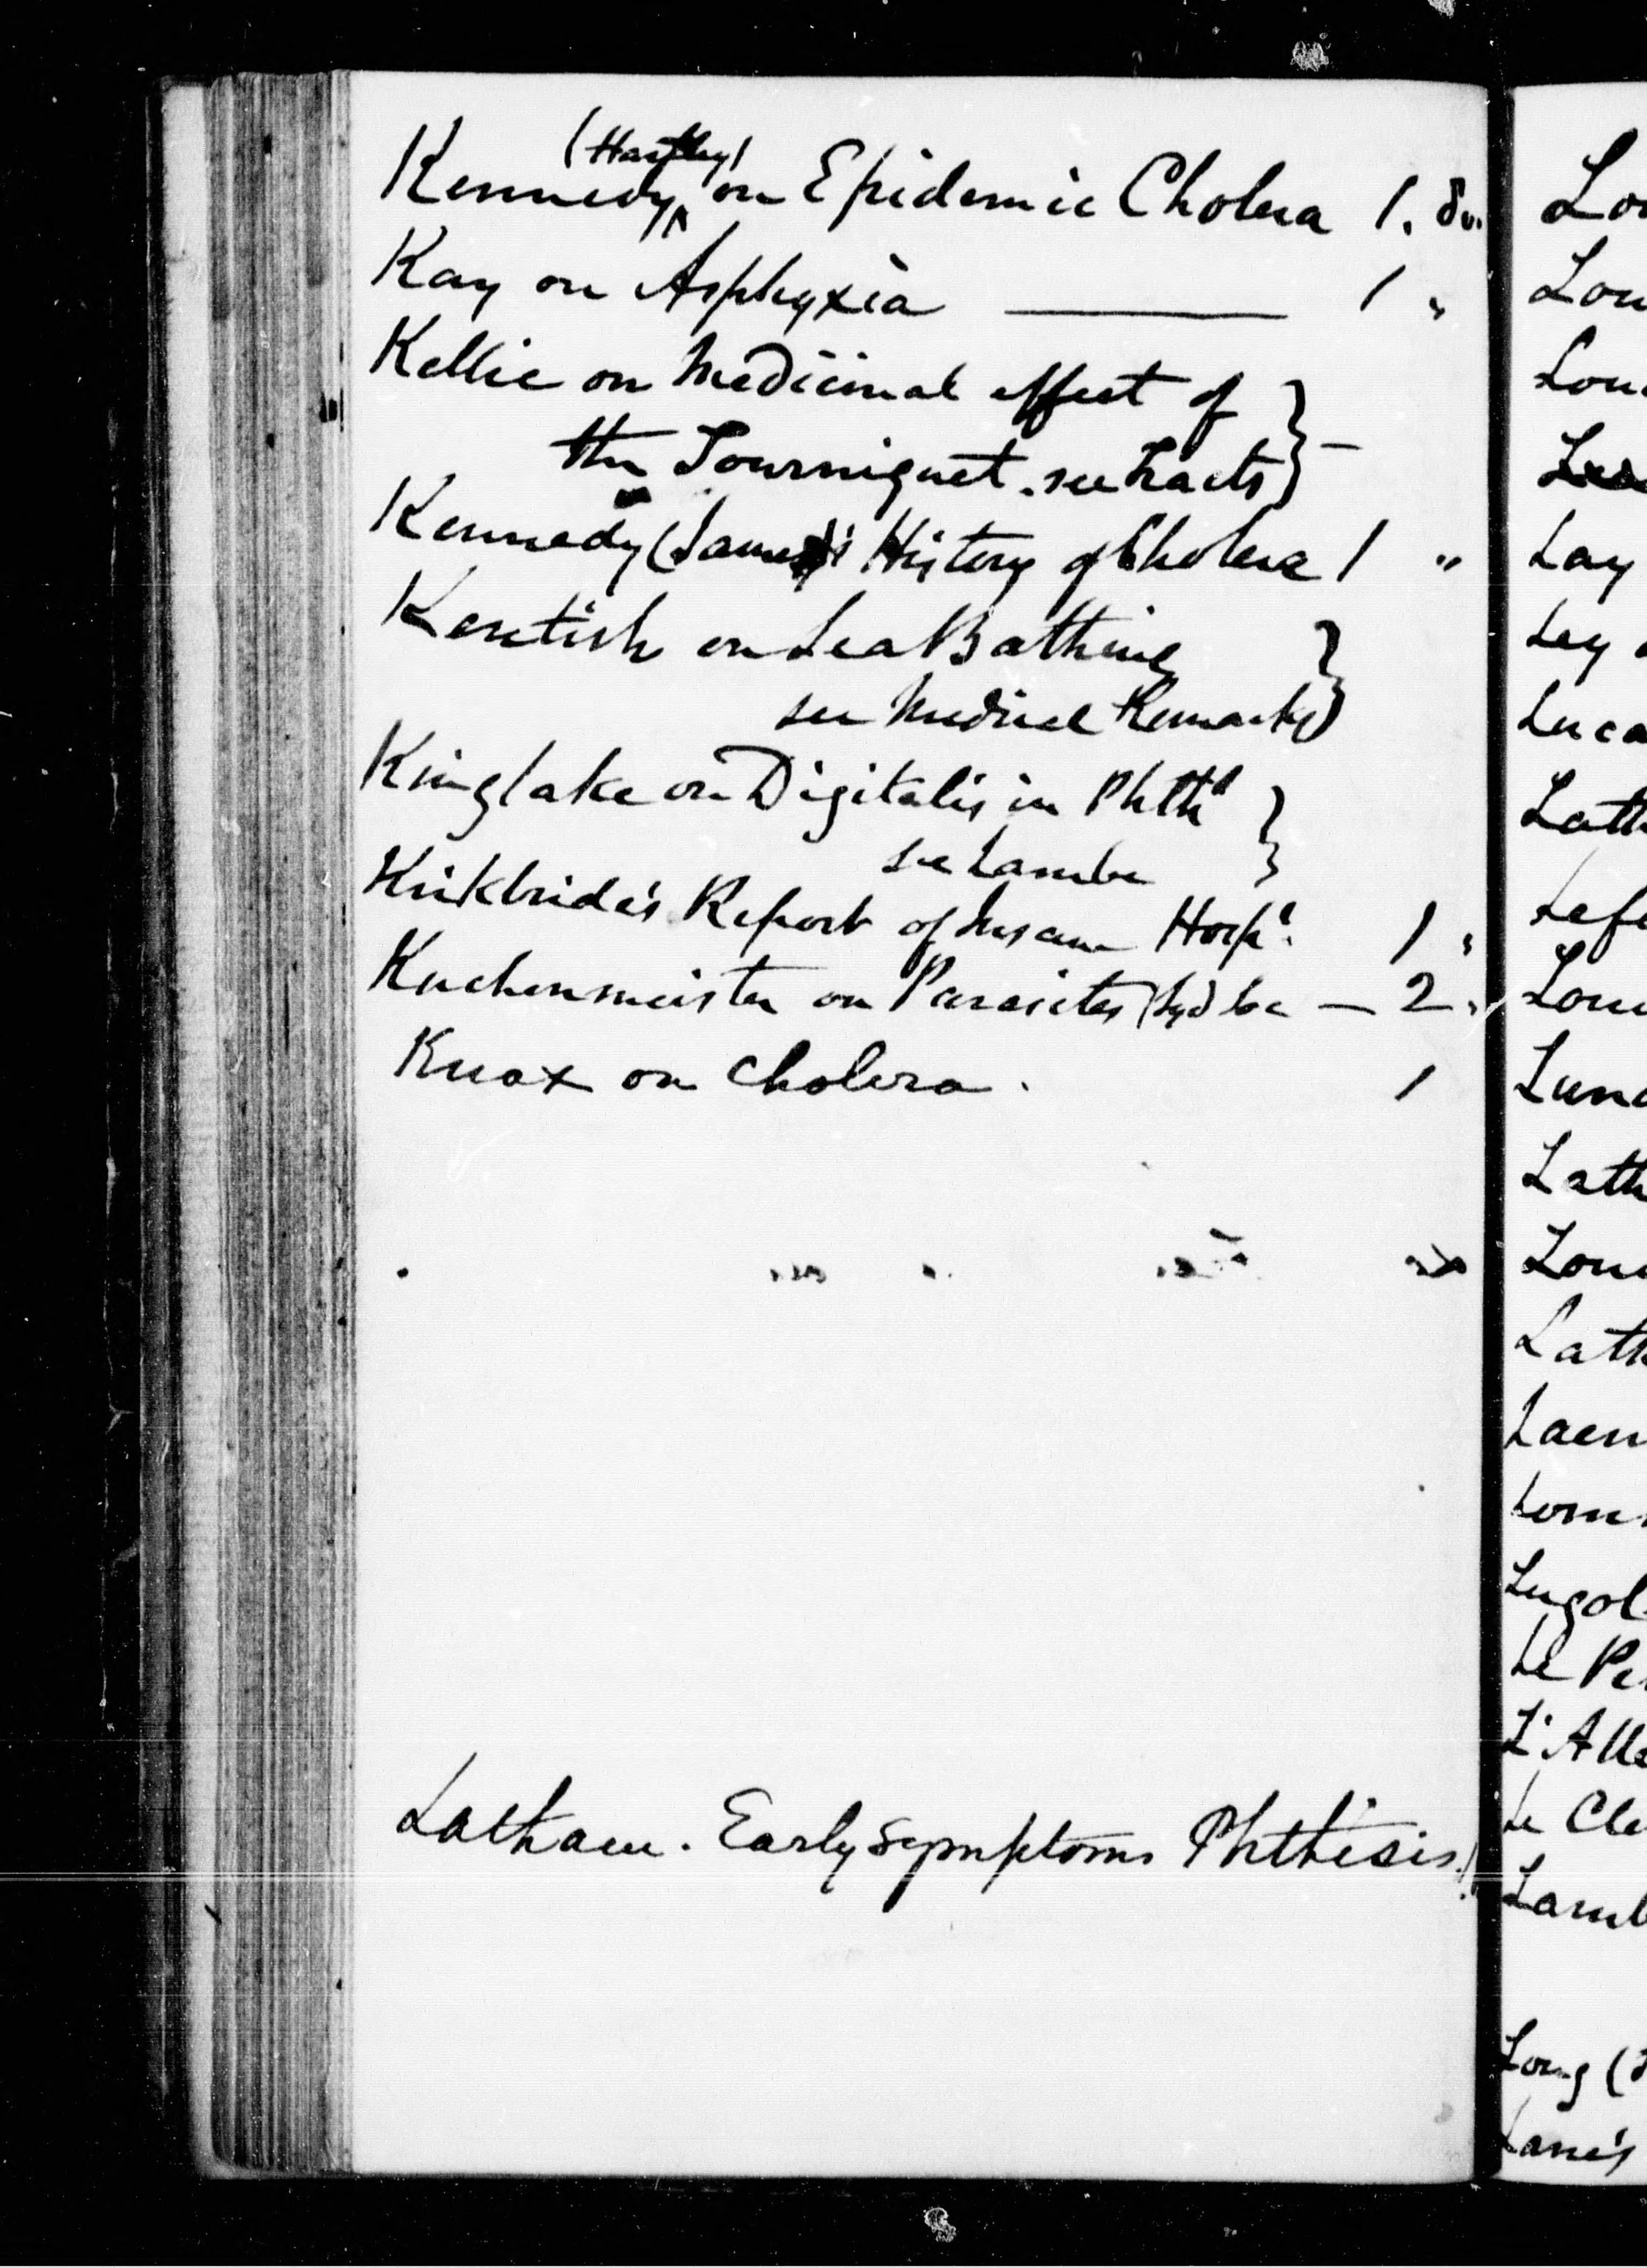 (Hartley)
Kennedy ^ on Epidemic Cholera 1. 8vo.
Kay on Asphyxia ——— 1 "
Kellie on Medicinal effect of }
the Tourniquet. see Tracts } –
Kennedy (James)'s History of Cholera 1 "
Kentish on Sea Bathing }
see Medical Remarks }
Kinglake on Digitalis in Phth }
see Lambe }
Kirkbride's Report of Insane Hosp! 1 "
Kuchenmeister on Parasites (Syd Soc — 2 "
Knox on Cholera. 1
Latham. Early Symptoms Phthisis. 1
Lon
Lon
Lon
Lay
Ley
Luca
Lath
Lefe
Lon
Lun
Lath
Lon
Lath
Laen
Lom
Lugol
Le Pe
L'Alle
Le Cle
Lamb
Long (
Lane's